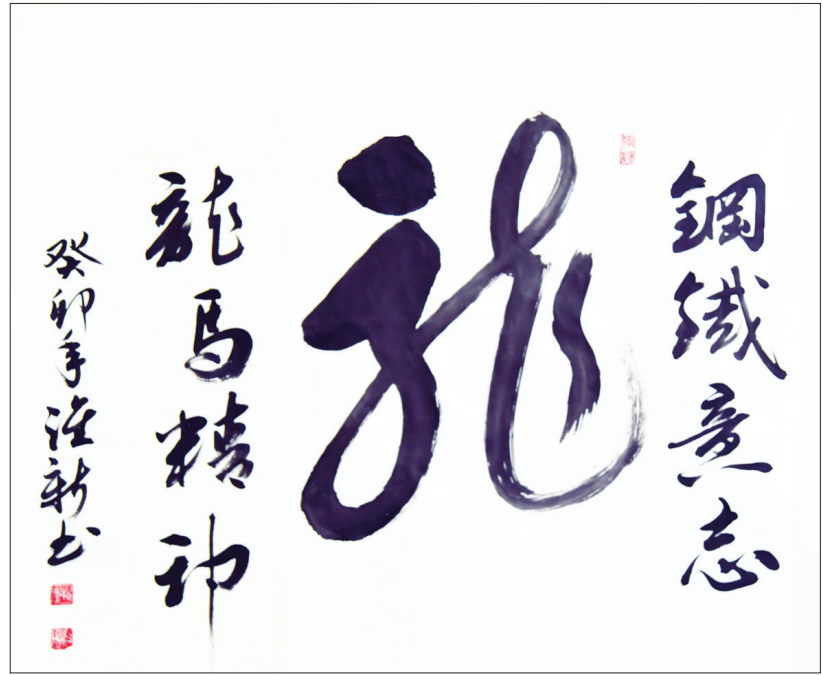 鋼鐵意志
龍
龍馬精神
癸卯年淮新书